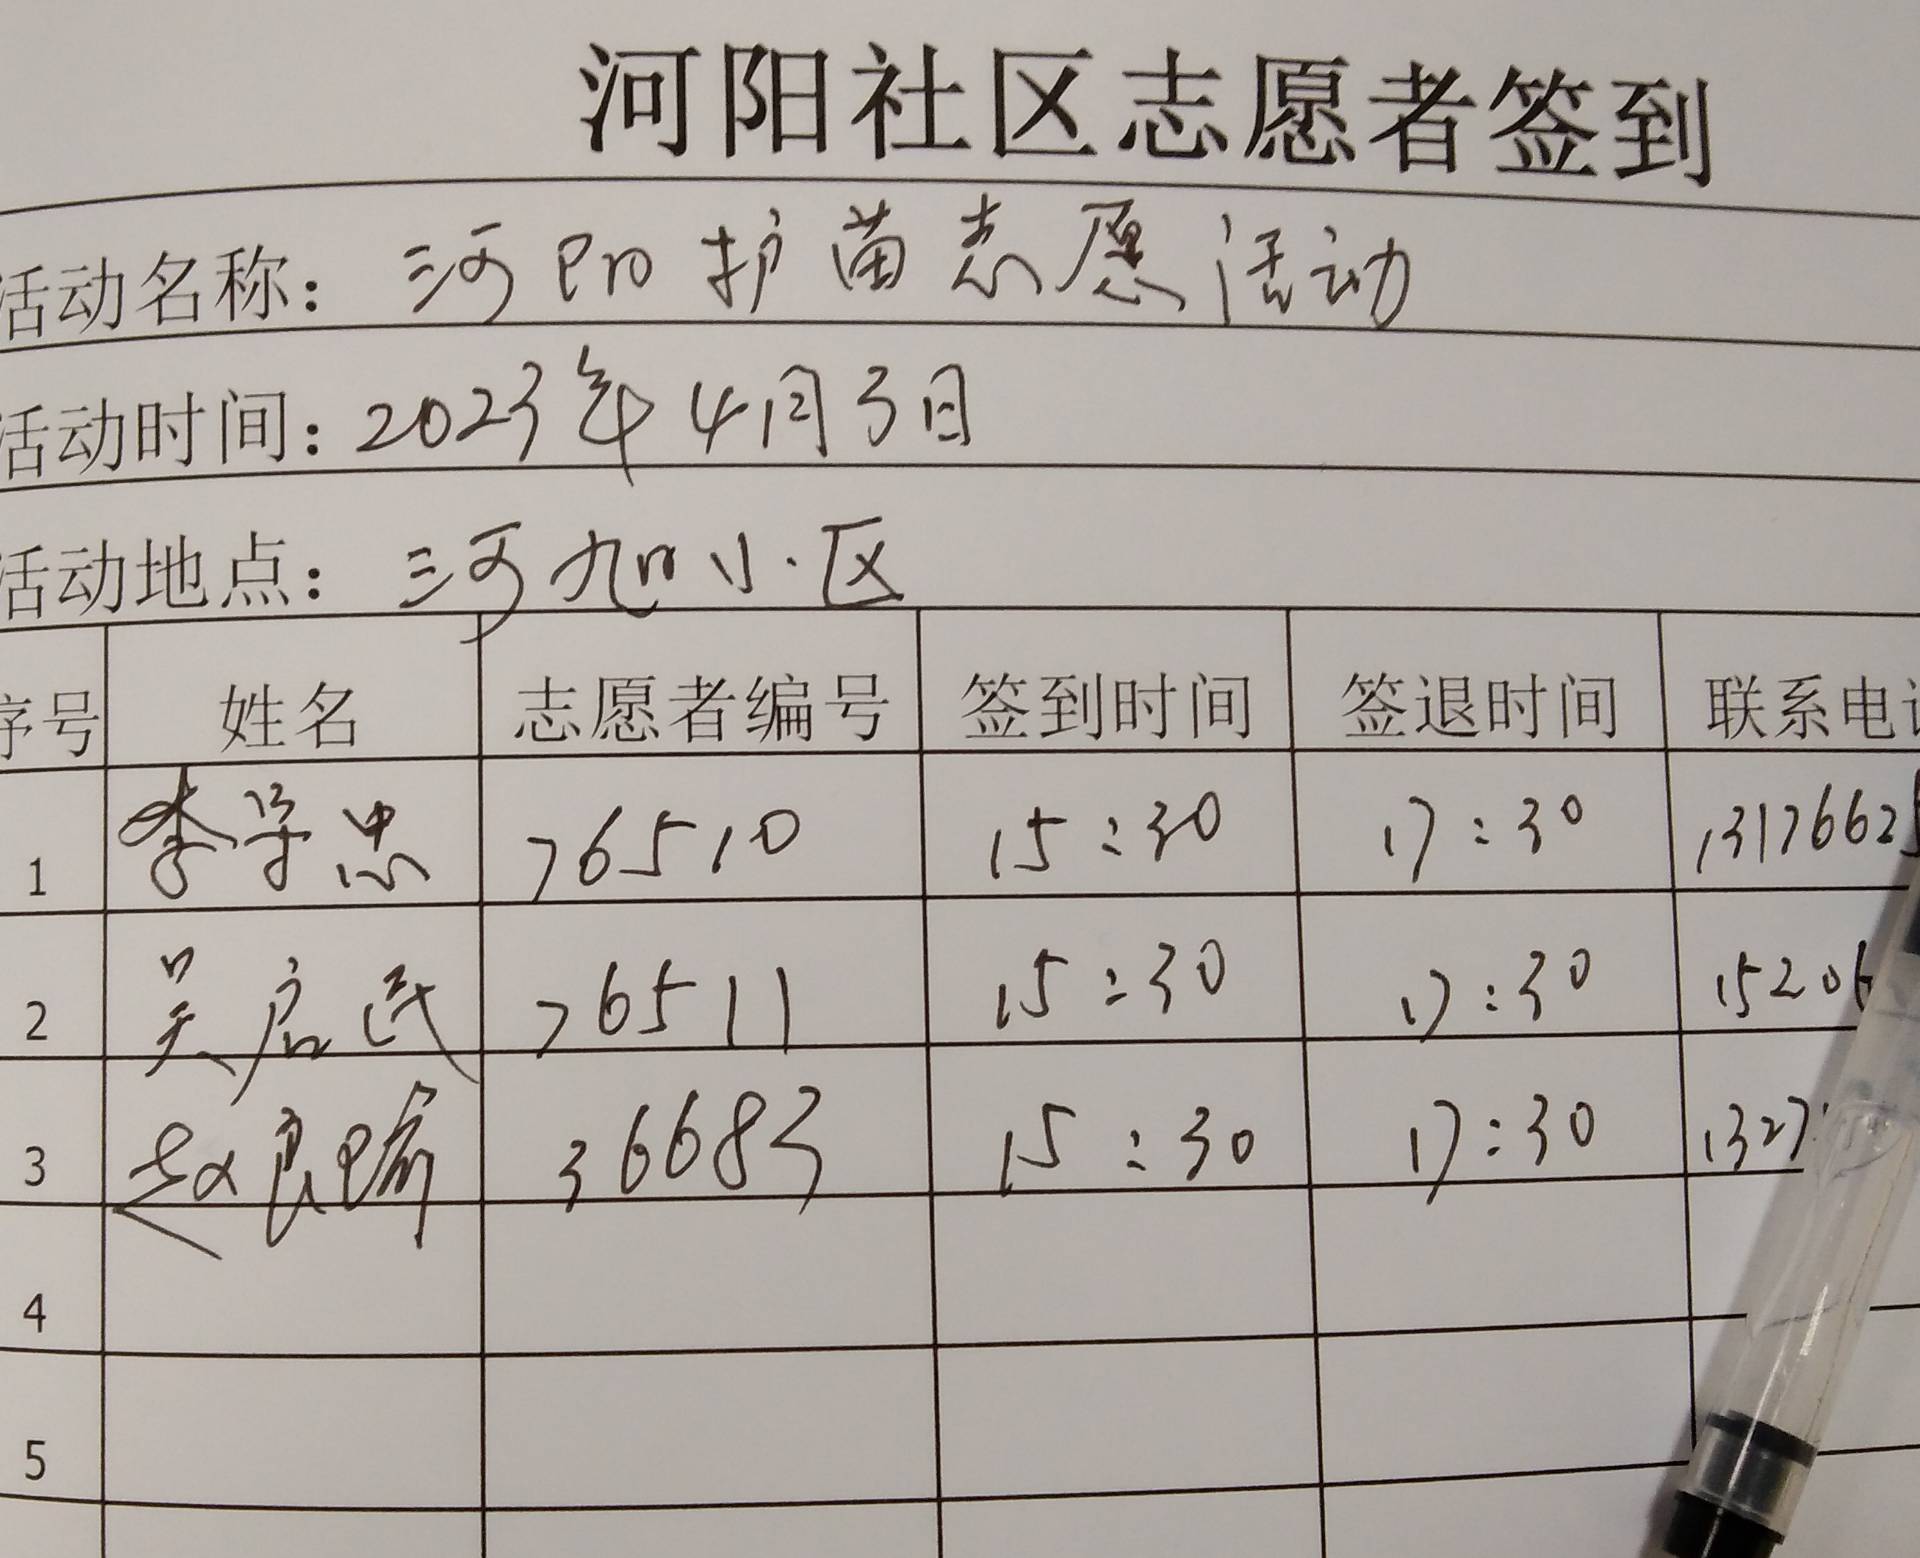 河阳社区志愿者签到
活动名称：河阳护苗志愿活动
活动时间：2023年4月3日
活动地点：河旭小区
序号 姓名 志愿者编号 签到时间 签退时间 联系电
1 李学忠 76510 15:30 17:30 1317662
2 吴启民 76511 15:30 17:30 15206
3 赵良瑜 36683 15:30 17:30 1327
4
5